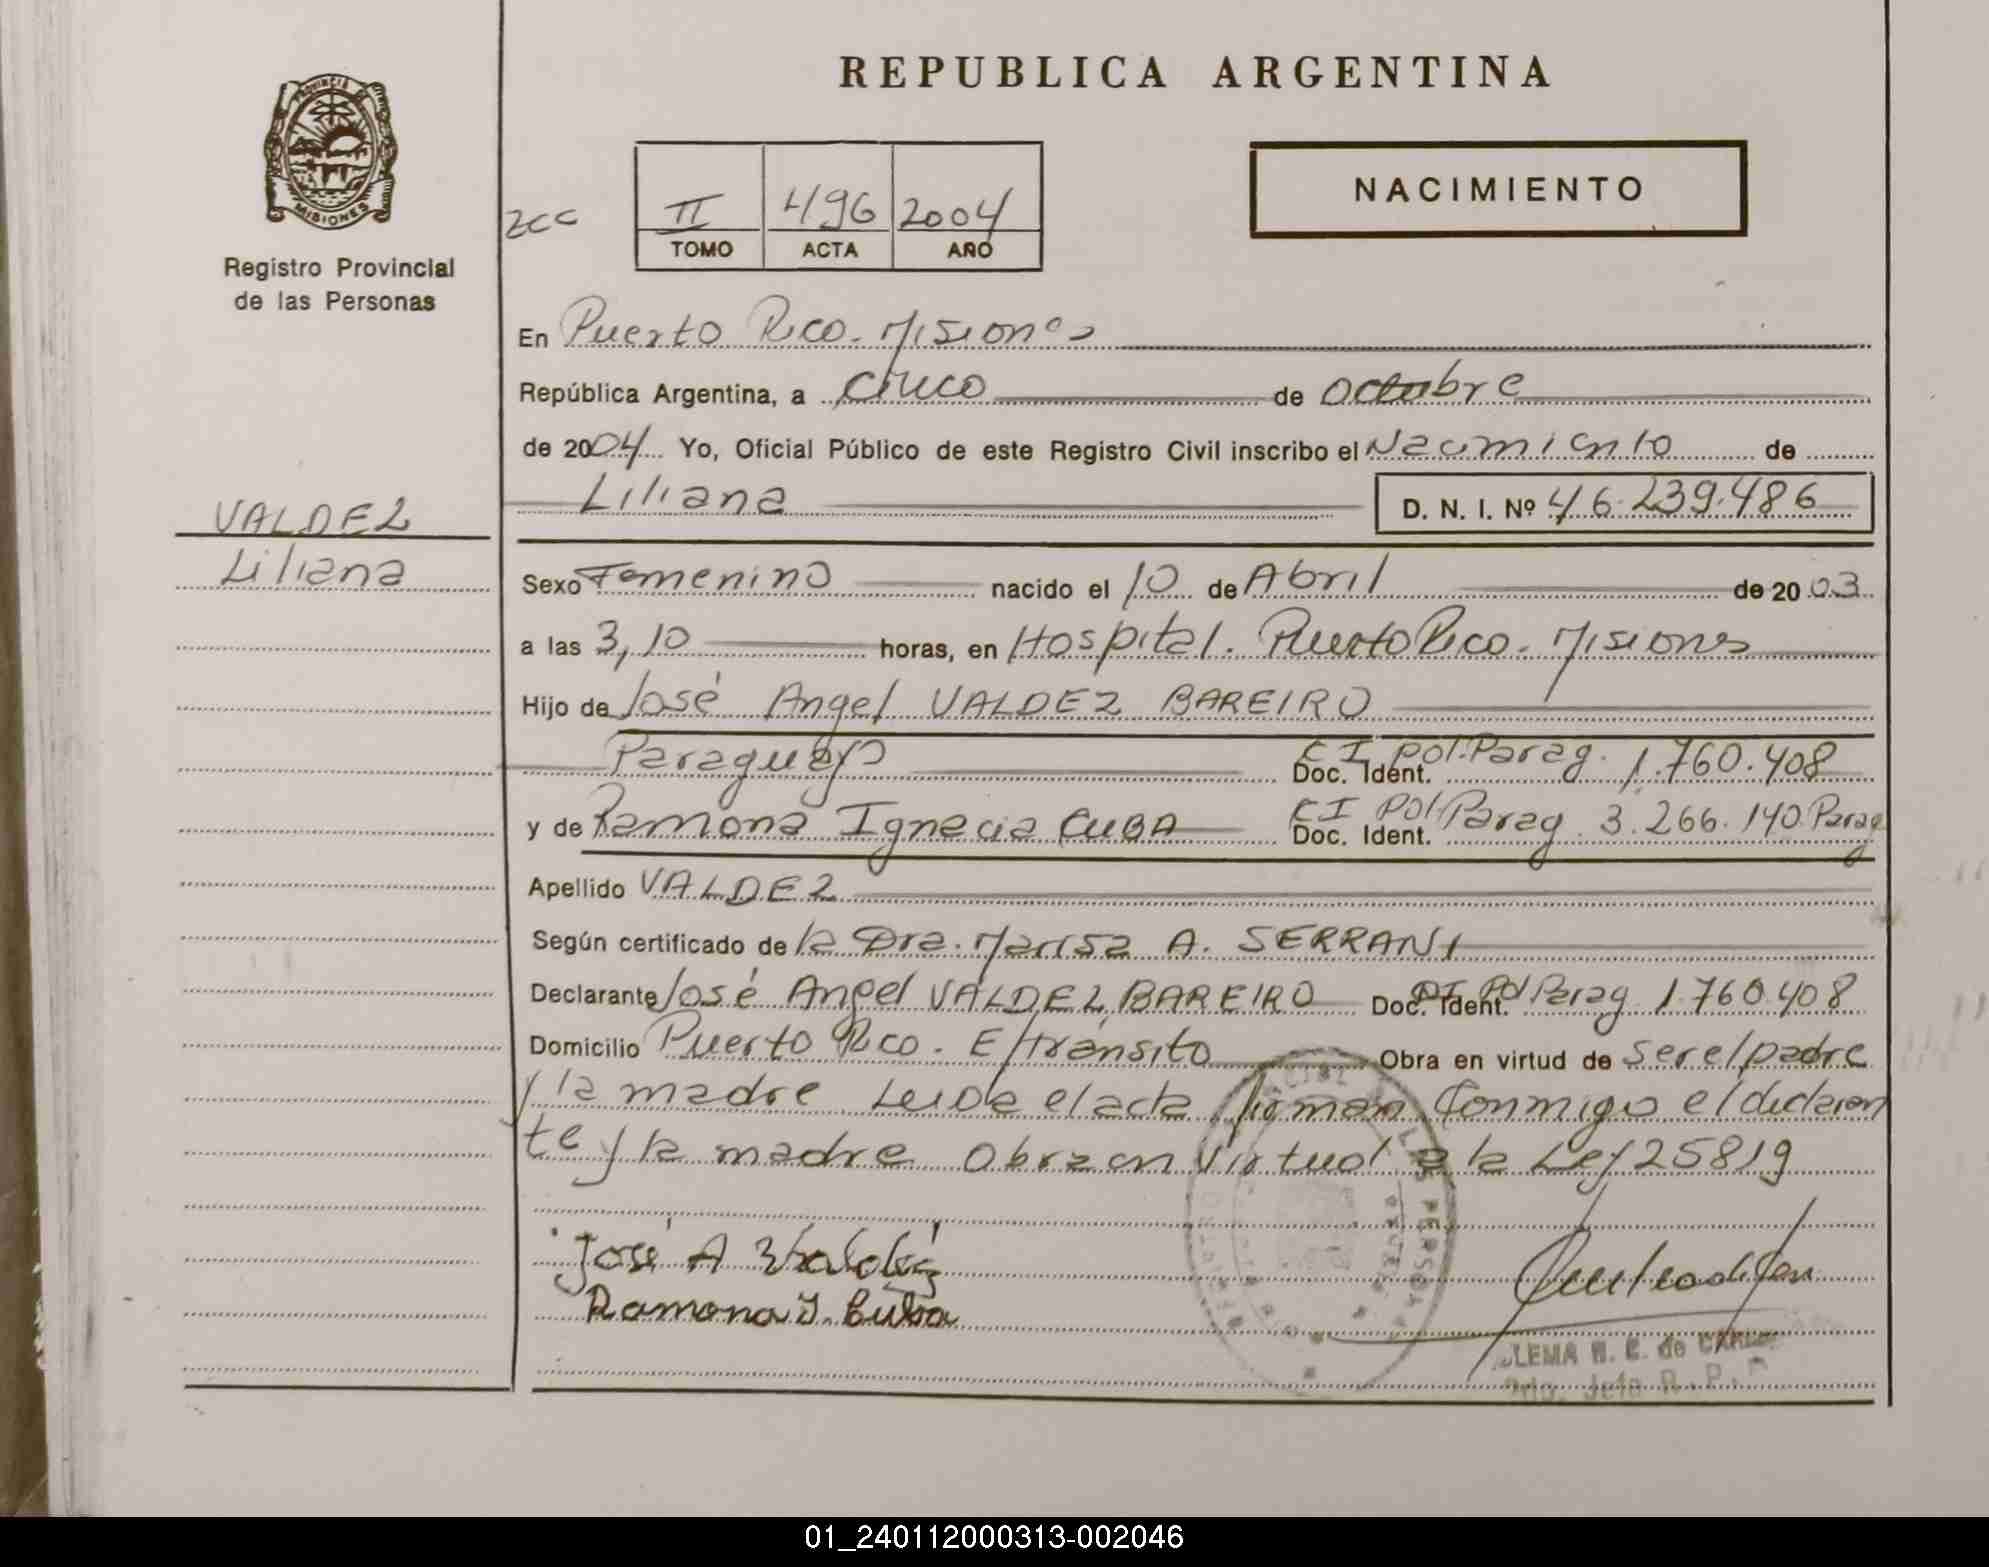 REPUBLICA ARGENTINA
PROVINCIA DE
MISIONES
Registro Provincial
de las Personas
2CC
II 496 2004
TOMO ACTA AÑO
NACIMIENTO
En Puerto Rico. Misiones
República Argentina, a cinco de octubre
de 2004 Yo, Oficial Público de este Registro Civil inscribo el Nacimiento de
Liliana D. N. I. Nº 46.239.486
VALDEZ
Liliana
Sexo Femenino nacido el 10 de Abril de 2003
a las 3,10 horas, en Hospital. Puerto Rico. Misiones
Hijo de José Angel VALDEZ BAREIRO
Paraguayo Doc. Ident. CI pol. Parag. 1.760.408
y de Ramona Ignacia CUBA Doc. Ident. CI Pol Parag 3.266.140 Parag
Apellido VALDEZ
Según certificado de la Dra. Marisa A. SERRANI
Declarante José Angel VALDEZ BAREIRO Doc. Ident. CI Pol Parag 1.760.408
Domicilio Puerto Rico. E/tránsito Obra en virtud de ser el padre
y la madre Leida el acta firman conmigo el declaran
te y la madre Obra en Virtud a la Ley 25819
José A Valdéz
Ramona I. Cuba
LEMA N. C. de
Jefe R. P. P
01_240112000313-002046